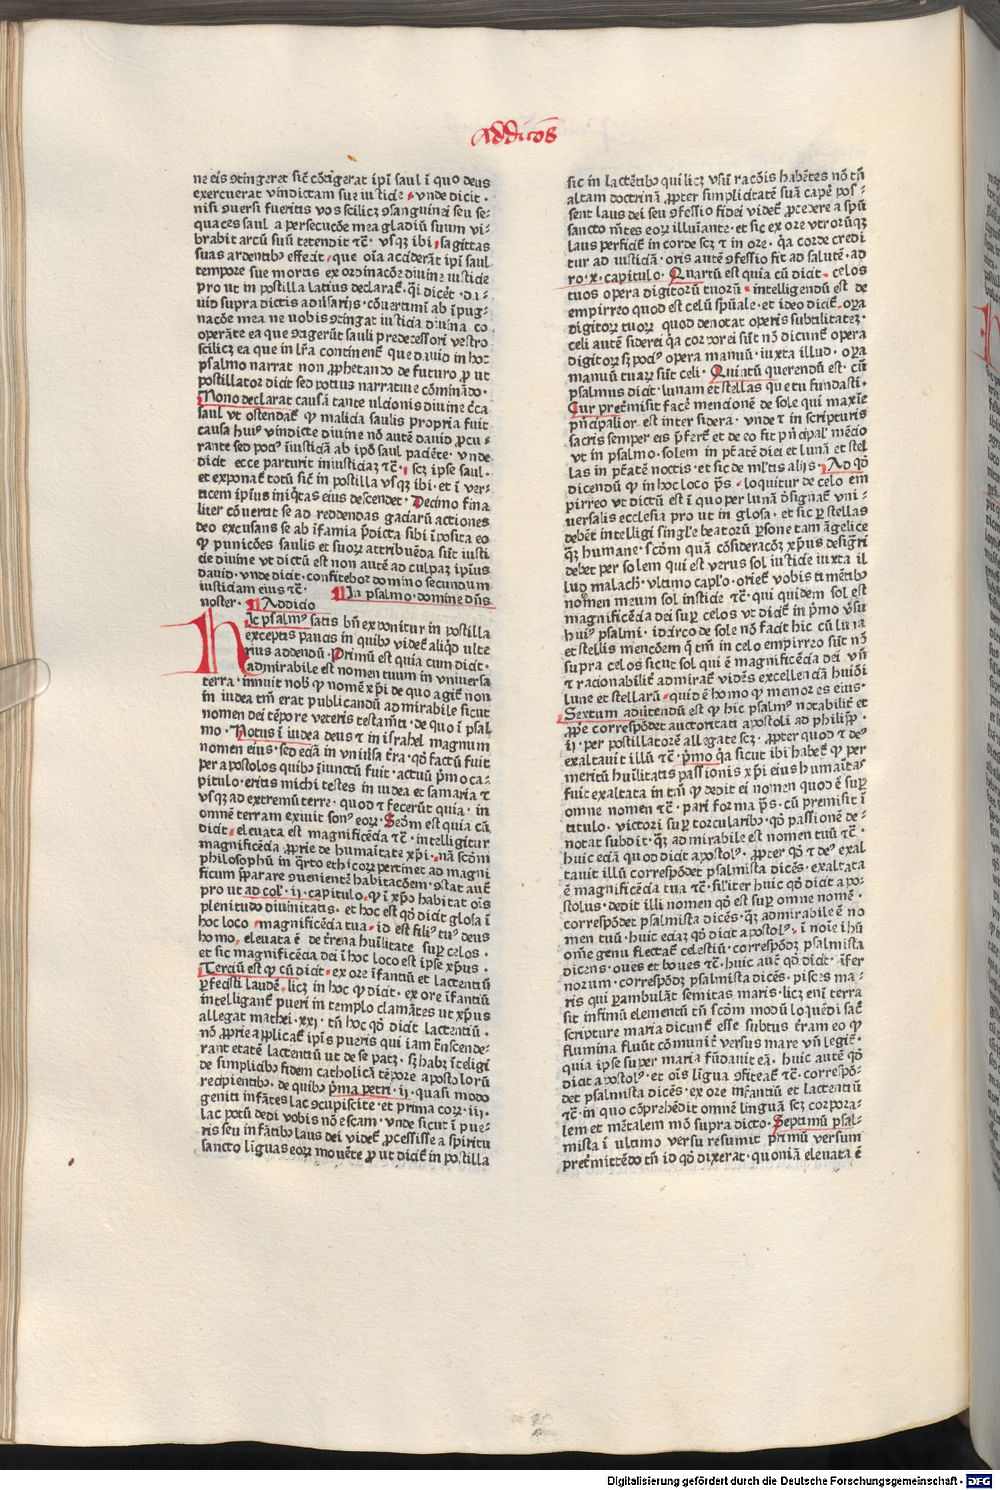 Addicoēs
ne eis ꝯtingeret sic̄ cōtigerat ip̄i saul ī quo deus
exercuerat vindictam sue iusticie · vnde dicit ·
nisi ꝯuersi fueritis vos scilicꝫ ꝯsanguinei seu se-
quaces saul a persecucōe mea gladiū suum vi-
brabit arcū suū tetendit ⁊c̄ · vsqꝫ ibi · sagittas
suas ardentibꝰ effecit · que oīa acciderāt ip̄i saul
tempore sue mortis ex ordinacōe diuine iusticie
pro ut in postilla latius declarat̄ · q̄i dicēt · da-
uid supra dictis adūsarijs · cōuertimī ab īpug-
nacōe mea ne vobis ꝯtingat iusticia diuina co
operāte ea que ꝯtigerūt sauli predecessori vestro
scilicꝫ ea que in lr̄a continent̄ que dauid in hoc
psalmo narrat non ꝓphetando de futuro ꝓ ut
postillator dicit sed potius narratiue cōminādo ·
Nono declarat causā tante ulcionis diuine c̄ca
saul vt ostendat̄ ꝙ malicia saulis propria fuit
causa huiꝰ vindicte diuine nō autē dauid ꝓcu-
rante sed pociꝰ īiusticiā ab ip̄o saul paciēte · vnde
dicit ecce parturit iniusticiaꝫ ⁊c̄ · scꝫ ipse saul ·
et exponat̄ totū sic̄ in postilla vsqꝫ ibi · et ī ver-
ticem ip̄ius iniq̄tas eius descendet · Decimo fina
liter cōuerat se ad reddendas graciarū actiones
deo excusans se ab īfamia p̄dicta sibi īposita eo
ꝙ punicōes saulis et suoꝝ attribuēda sūt iusti
cie diuine vt dictū est non autē ad culpaꝫ ip̄ius
dauid · vnde dicit · confitebor domino secundum
iusticiam eius ⁊c̄ · ¶ In psalmo · domine dn̄s
noster · ¶ Addicio
Hic psalmꝰ satis bn̄ exponitur in postilla
exceptis paucis in quibꝰ videt̄ aliq̄d ulte
rius addendū · Primū est quia cum dicit ·
admirabile est nomen tuum in vniuersa
terra · innuit nob̄ ꝙ nomē xp̄i de quo agit̄ non
in iudea tm̄ erat publicandū admirabile sicut
nomen dei tēpore veteris testamēti · de quo ī psal
mo · Notus ī iudea deus ⁊ in israhel magnum
nomen eius · sed eciā in vniūsa t̄ra · qd̄ factū fuit
per apostolos quibꝰ īiunctū fuit · actuū p̄mo ca-
pitulo · eritis michi testes in iudea et samaria ⁊
vsqꝫ ad extremū terre · quod ⁊ fecerūt quia · in
omnē terram exiuit sonꝰ eoꝝ · Scd̄m est quia cū
dicit · eleuata est magnificēcia ⁊c̄ · intelligitur
magnificēcia ꝓprie de humaītate xp̄i · nā scd̄m
philosophū in q̄rto ethicoꝝ pertinet ad magni
ficum p̄parare ꝯuenientē habitacōem · ꝯstat aut̄
pro ut ad col̄ · ij · capitulo · ꝙ ī xp̄o habitat oīs
plenitudo diuinitatis · et hoc est qd̄ dicit glosa ī
hoc loco · magnificēcia tua · id est filiꝰ tuꝰ deus
homo · eleuata ē de t̄rena huīlitate suꝑ celos ·
et sic magnificēcia dei ī hoc loco est ipse xp̄us ·
Terciū est ꝙ cū dicit · ex ore īfantiū et lactentiū
ꝑfecisti laudē · licꝫ in hoc ꝙ dicit · ex ore īfantiū
intelligant̄ pueri in templo clamātes ut xp̄us
allegat mathei · xxj · tn̄ hoc qd̄ dicit lactentiū ·
nō ꝓprie applicat̄ ip̄is pueris qui iam t̄nscende-
rant etatē lactentiū ut de se patꝫ · sꝫ habꝫ īteligi
de simplicibꝰ fidem catholicā tēpore apostolorū
recipientibꝰ · de quibꝰ p̄ma petri · ij · quasi modo
geniti infātes lac ꝯcupiscite · et prima coꝝ · iij ·
lac potū dedi vobis nō escam · vnde sicut ī pue-
ris seu infātibꝰ laus dei videt̄ ꝓcessisse a spiritu
sancto liguas eoꝝ mouēte ꝓ ut dicit̄ in postilla
sic in lactētibꝰ qui licꝫ vsū racōis habētes nō tn̄
altam doctrinā ꝓpter simplicitatē suā cape pos-
sent laus dei seu ꝯfessio fidei videt̄ ꝓcedere a spū
sancto mētes eoꝝ illuīante · et sic ex ore vtrorūqꝫ
laus perficit̄ in corde scꝫ ⁊ in ore · q̄a corde credi
tur ad iusticiā · oris autē ꝯfessio fit ad salutē · ad
ro · x · capitulo · Quartū est quia cū dicit · celos
tuos opera digitorū tuorū · intelligendū est de
empirreo quod est celū spūale · et ideo dicit̄ · oꝑa
digitoꝝ tuoꝝ quod denotat operis subtilitatez ·
celi autē siderei q̄a corporei sūt nō dicunt̄ opera
digitoꝝ sꝫ pociꝰ opera manuū · iuxta illud · oꝑa
manuū tuaꝝ sūt celi · Quintū querendū est · cū
psalmus dicit · lunam et stellas que tu fundasti ·
Cur pret̄misit facē mencionē de sole qui maxīe
pn̄cipalior est inter sidera · vnde ⁊ in scripturis
sacris semper eis p̄fert̄ et de eo fit pn̄cipalꝰ mēcio
vt in psalmo · solem in p̄tatē diei et lunā et stel
las in p̄tatē noctis · et sic de ml̄tis alijs · Ad qd̄
dicendū ꝙ in hoc loco ps̄ · loquitur de celo em
pirreo vt dictū est ī quo per lunā ꝯsignat̄ vni-
uersalis ecclesia pro ut in glosa · et sic ꝑ stellas
debēt intelligi singl̄e beatorū ꝑsone tam āgelice
qꝫ humane · scd̄m quā cōsideracōꝫ xp̄us desig̃ri
debet per solem qui est verus sol iusticie iuxta il
lud malachꝰ · vltimo capl̄o · oriet̄ vobis timētibꝰ
nomen meum sol insticie ⁊c̄ · qui quidem sol est
magnificēcia dei suꝑ celos vt dicit̄ in p̄mo v̄su
huiꝰ psalmi · idcirco de sole nō facit hic cū luna
et stellis mencōem q̄ tm̄ in celo empirreo sūt nō
supra celos sicut sol qui ē magnificēcia dei vn̄
⁊ racionabilit̄ admirat̄ vidēs excellenciā huiꝰdi
lune et stellarū · quid ē homo ꝙ memor es eius ·
Sextum adūtendū est ꝙ hic psalmꝰ notabilit̄ et
ꝓp̄e correspōdet auctoritati apostoli ad philip̄ ·
ij · per postillatorē allegate scꝫ · ꝓpter quod ⁊ deꝰ
exaltauit illū ⁊c̄ · p̄mo q̄a sicut ibi habet̄ ꝙ per
meritū huīlitatis passionis xp̄i eius humaītas
fuit exaltata in tm̄ ꝙ dedit ei nomen quod ē suꝑ
omne nomen ⁊c̄ · pari forma ps̄ · cū premisit ī
titulo · victori suꝑ torcularibꝰ · qd̄ passionē de-
notat subdit · qꝫ admirabile est nomen tuū ⁊c̄ ·
huic eciā quod dicit apostolꝰ · ꝓpter qd̄ ⁊ deꝰ exal
tauit illū correspōdet psalmista dicēs · exaltata
ē magnificēcia tua ⁊c̄ · sil̄iter huic qd̄ dicit apo-
stolus · dedit illi nomen qd̄ est suꝑ omne nomē ·
correspōdet psalmista dicēs · qꝫ admirabile ē no
men tuū · huic eciaꝫ qd̄ dicit apostolꝰ · ī noīe ihū
om̄e genu flectat̄ celestiū · correspōdꝫ psalmista
dicens · oues et boues ⁊c̄ · huic aut̄ qd̄ dicit · īfer
norum · correspōdꝫ psalmista dicēs · pisces ma-
ris qui ꝑambulāt semitas maris · licꝫ enī terra
sit infimū elementū tn̄ scd̄m modū loquēdi sac̄
scripture maria dicunt̄ esse subtus t̄ram eo ꝙ
flumina fluūt cōmunit̄ versus mare vn̄ legit̄ ·
quia ipse super maria fūdauit eā · huic autē qd̄
dicit apostolꝰ · et oīs ligua ꝯfiteat̄ ⁊c̄ · correspō-
det psalmista dicēs · ex ore infantiū et lactentiū
⁊c̄ · in quo cōprehēdit omnē linguā scꝫ corpora-
lem et mētalem mō supra dicto · Septimū psal-
mista ī ultimo versu resumit primū versum
pret̄mittēdo tn̄ id qd̄ dixerat · quoniā eleuata ē
Digitalisierung gefördert durch die Deutsche Forschungsgemeinschaft - DFG